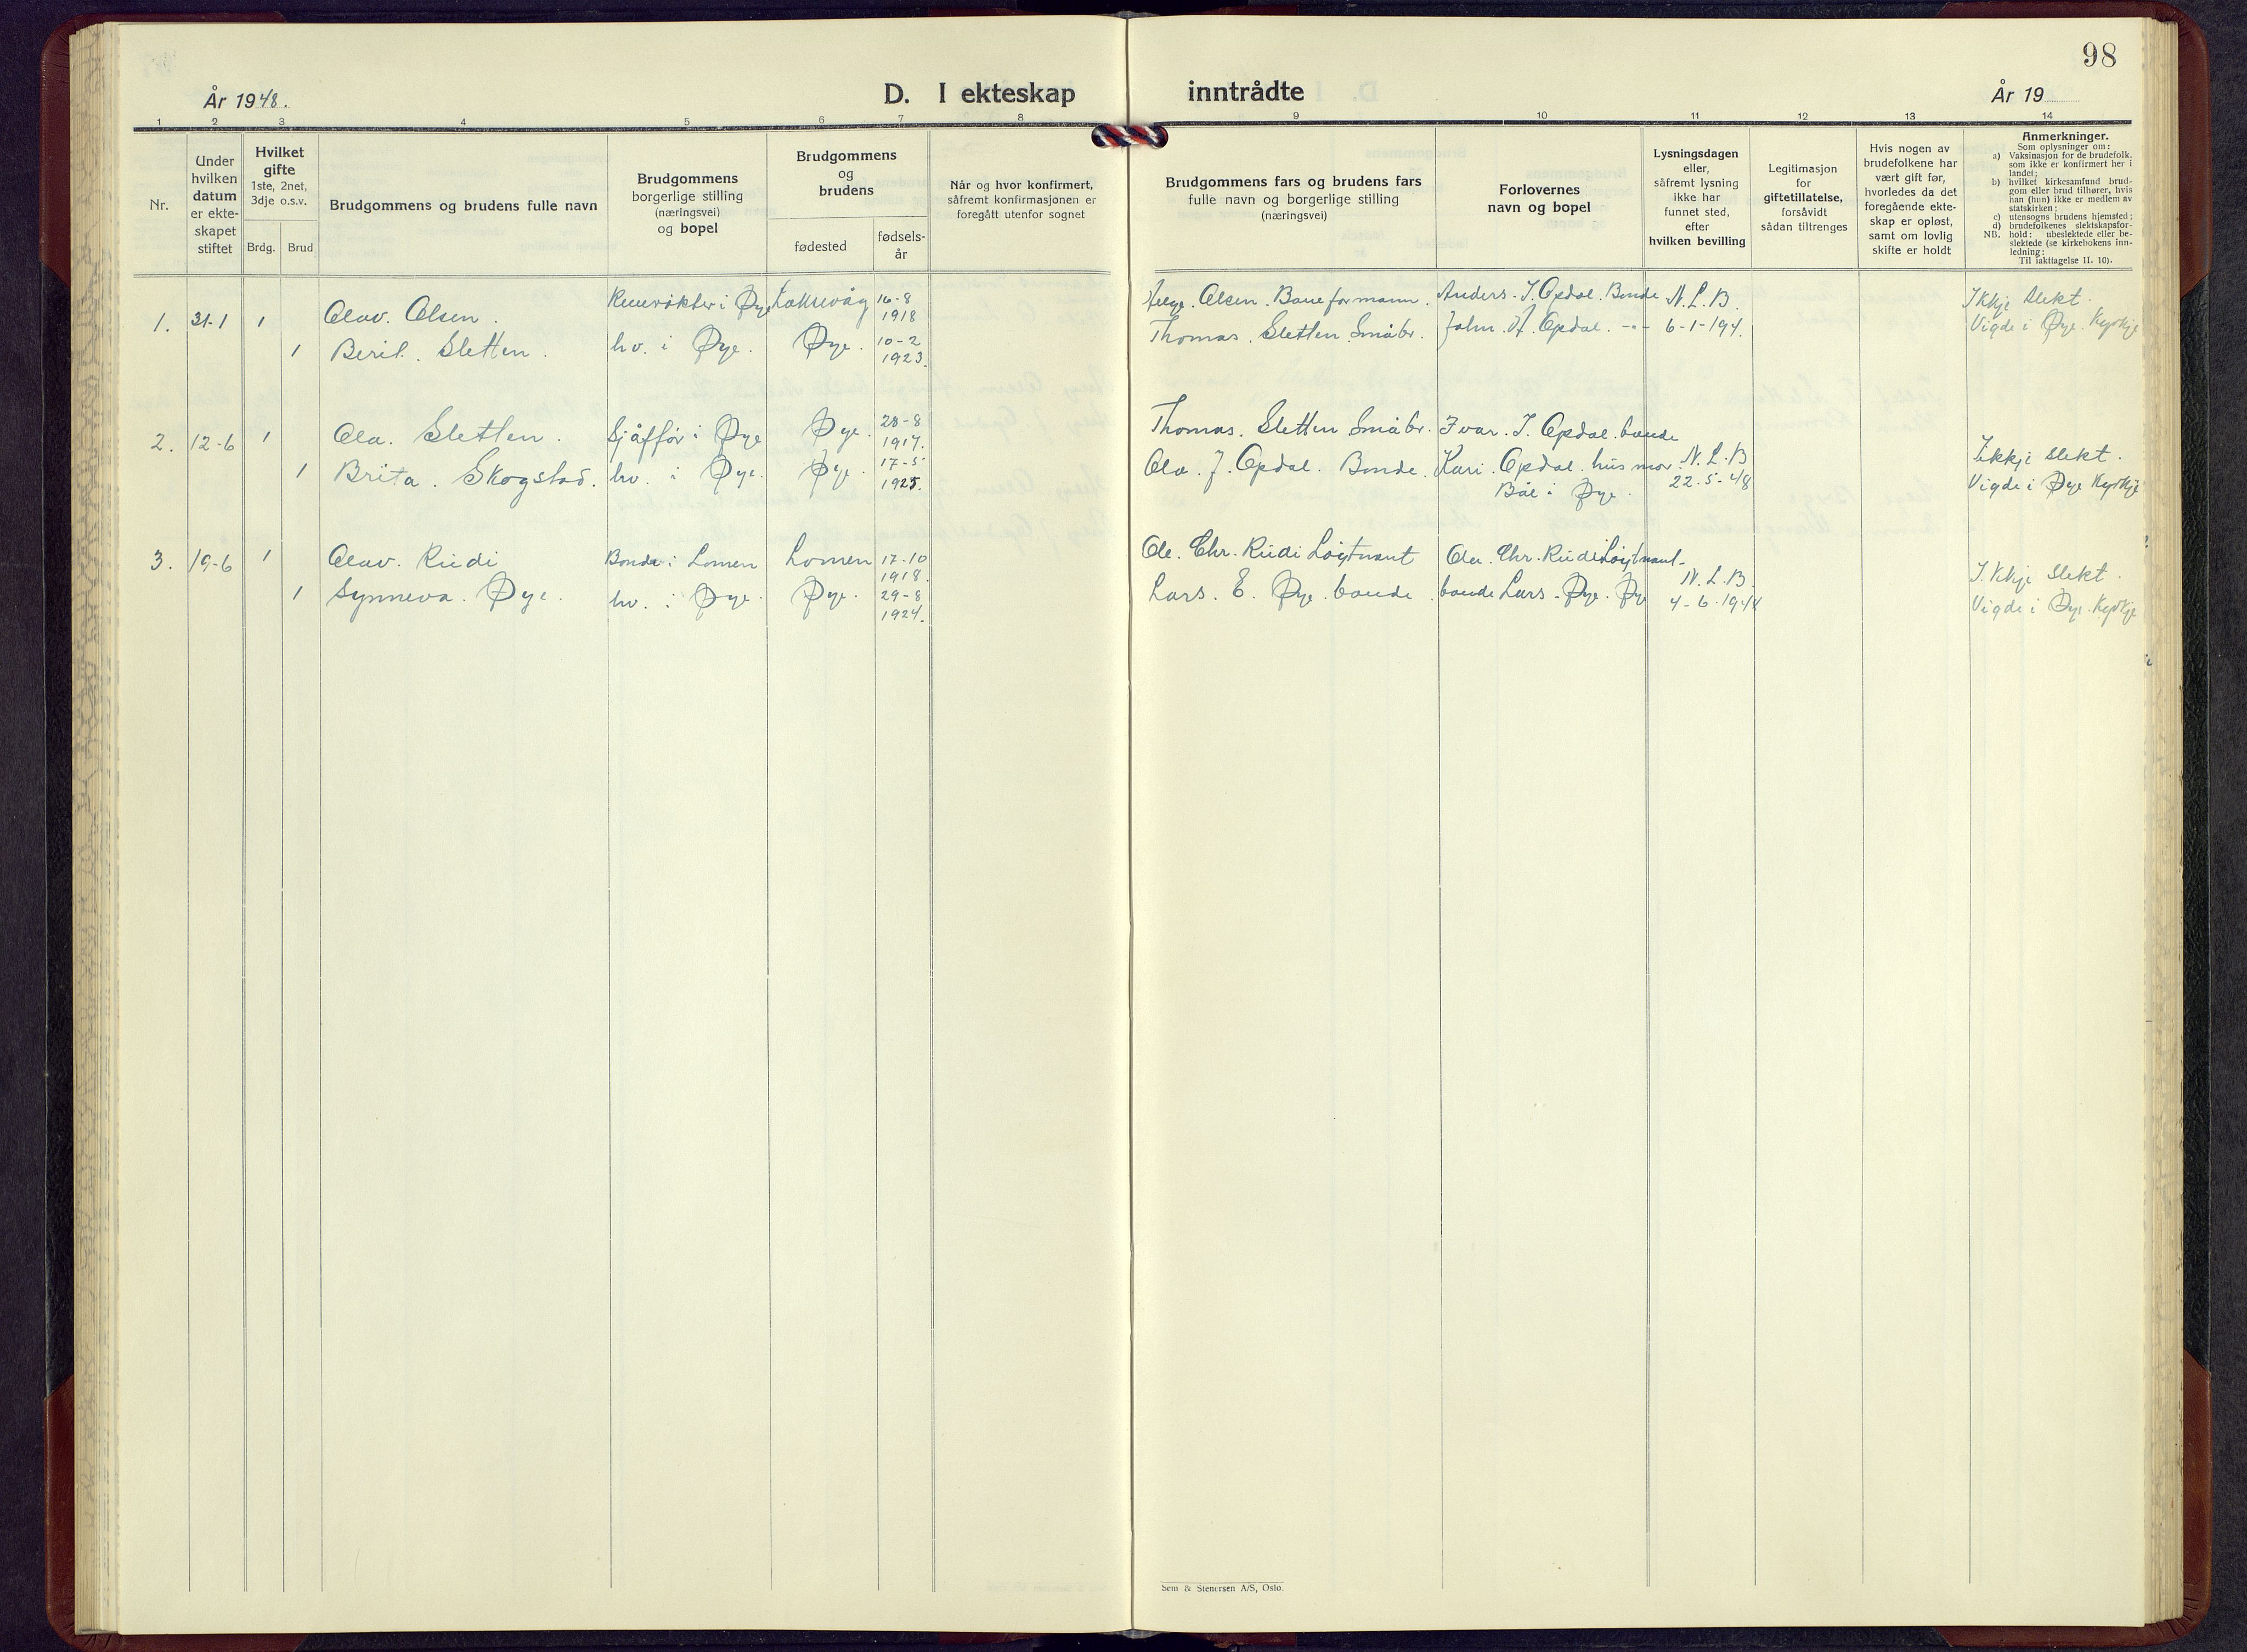 98
År 1948.
D. I ekteskap inntrådte
År 19
1 2 3 4 5 6 7 8 9 10 11 12 13 14
Nr.
Under
hvilken
datum
er ekte-
skapet
stiftet
Hvilket
gifte
1ste, 2net,
3dje o.s.v.
Brdg. Brud
Brudgommens og brudens fulle navn
Brudgommens
borgerlige stilling
(næringsvei)
og bopel
Brudgommens
og
brudens
fødested
fødsels-
år
Når og hvor konfirmert,
såfremt konfirmasjonen er
foregått utenfor sognet
Brudgommens fars og brudens fars
fulle navn og borgerlige stilling
(næringsvei)
Forlovernes
navn og bopel
Lysningsdagen
eller,
såfremt lysning
ikke har
funnet sted,
efter
hvilken bevilling
Legitimasjon
for
giftetillatelse,
forsåvidt
sådan tiltrenges
Hvis nogen av
brudefolkene har
vært gift før,
hvorledes da det
foregående ekte-
skap er opløst,
samt om lovlig
skifte er holdt
Anmerkninger.
Som oplysninger om:
a) Vaksinasjon for de brudefolk,
som ikke er konfirmert her i
landet;
b) hvilket kirkesamfund brud-
gom eller brud tilhører, hvis
han (hun) ikke er medlem av
statskirken;
c) utensogns brudens hjemsted;
d) brudefolkenes slektskapsfor-
NB. hold: ubeslektede eller be-
slektede (se kirkebokens inn-
ledning:
Til iakttagelse II. 10).
1. 31-1 1 Olav. Olsen. Revevøkter i Øye Laksevåg 16-8
1918
Helge. Olsen. Baneformann. Anders. I. Opdal. Bonde N. L. B.
Ikkje slekt.
1 Berit. Sletten. hv. i Øye. Øye. 10-2
1923.
Thomas. Sletten. Småbr. John. H. Opdal. -"- 6-1-194.
Vigde i Øye. Kyrkje
2. 12-6 1 Ola. Sletten. Sjåffør i Øye Øye. 28-8
1917.
Thomas. Sletten Småbr. Ivar. I. Opdal. bonde
1 Brita. Skogstad. hv. i Øye. Øye. 17-5
1925.
Ola. J. Opdal. Bonde. Kari. Opdal. husmor. N. L. B
22.5-48
Båe i Øye.
Ikkje slekt.
Vigde i Øye Kyrkje
3. 19-6 1 Olav. Rudi Bonde i Lomen Lomen 17-10
1918.
Ole. Chr. Rudi Løytnant Ole. Chr. Rudi Løytnant-
1 Synneva. Øye. hv. i Øye. Øye. 29-8
1924.
Lars. E. Øye. bonde. bonde Lars. Øye. Øye
N. L. B.
4-6-1948
Ikkje slekt.
Vigde i Øye. Kyrkje
Sem & Stenersen A/S, Oslo.